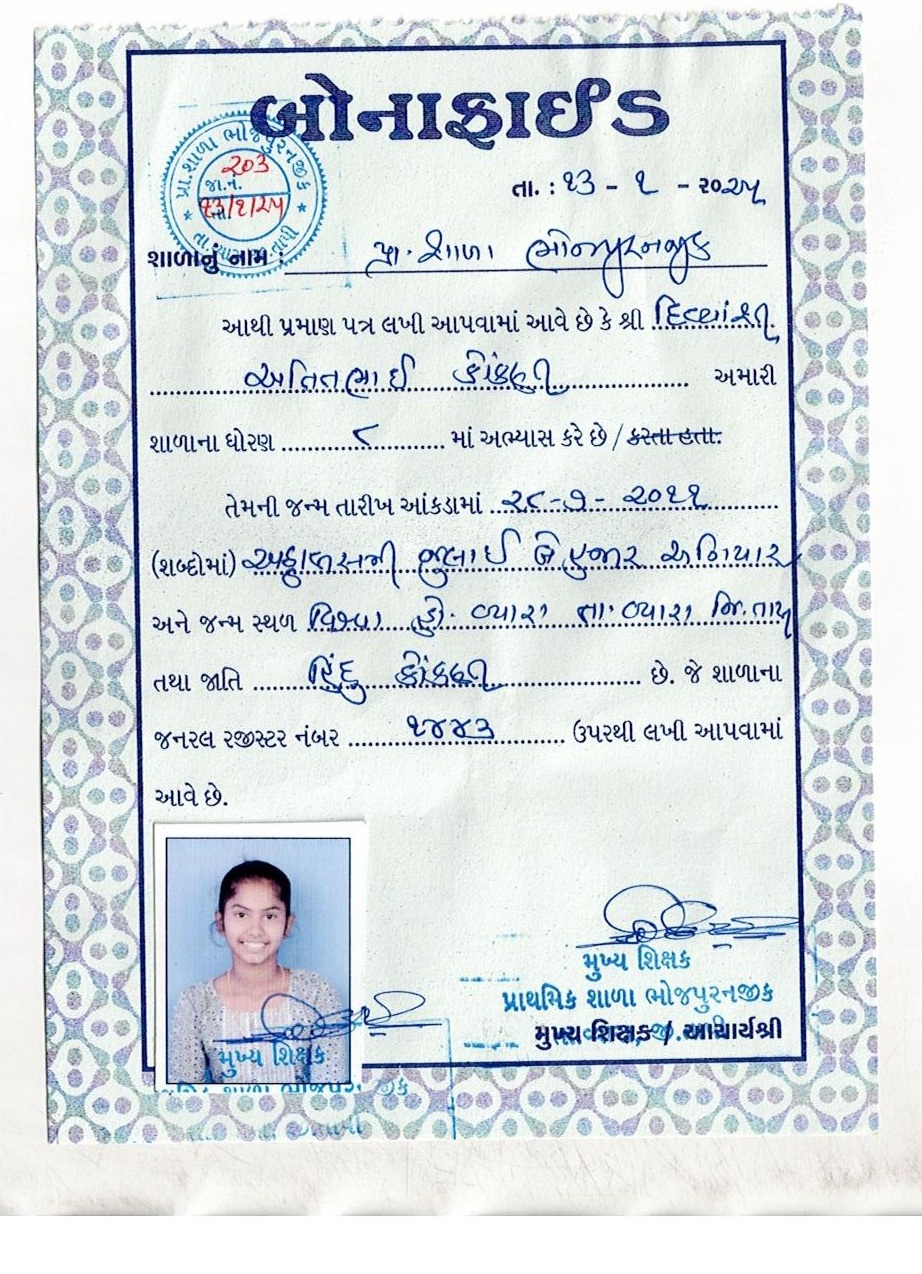 બોનાફાઈડ
પ્રા.શાળા ભોજપુરનજીક
૨૦૩
જા.નં.
૧૩/૧/૨૫
તા.: ૧૩ - ૧ - ૨૦૨૫
શાળાનું નામ : પ્રા. શાળા ભોજપુરનજીક
આથી પ્રમાણ પત્ર લખી આપવામાં આવે છે કે શ્રી દિવ્યાંશ્રી
અતિતભાઈ કોંકણી અમારી
શાળાના ધોરણ ૮ માં અભ્યાસ કરે છે / કરતા હતા.
તેમની જન્મ તારીખ આંકડામાં ૨૮-૭-૨૦૧૧
(શબ્દોમાં) અઠ્ઠાવીસમી જુલાઈ બે હજાર અગિયાર
અને જન્મ સ્થળ હો. વ્યારા તા. વ્યારા જિ. તાપી
તથા જાતિ હિંદુ કોંકણી છે. જે શાળાના
જનરલ રજીસ્ટર નંબર ૧૪૪૩ ઉપરથી લખી આપવામાં
આવે છે.
મુખ્ય શિક્ષક
પ્રાથમિક શાળા ભોજપુરનજીક
મુખ્ય શિક્ષક / આચાર્યશ્રી
મુખ્ય શિક્ષક
શાળા ભોજપુરનજીક